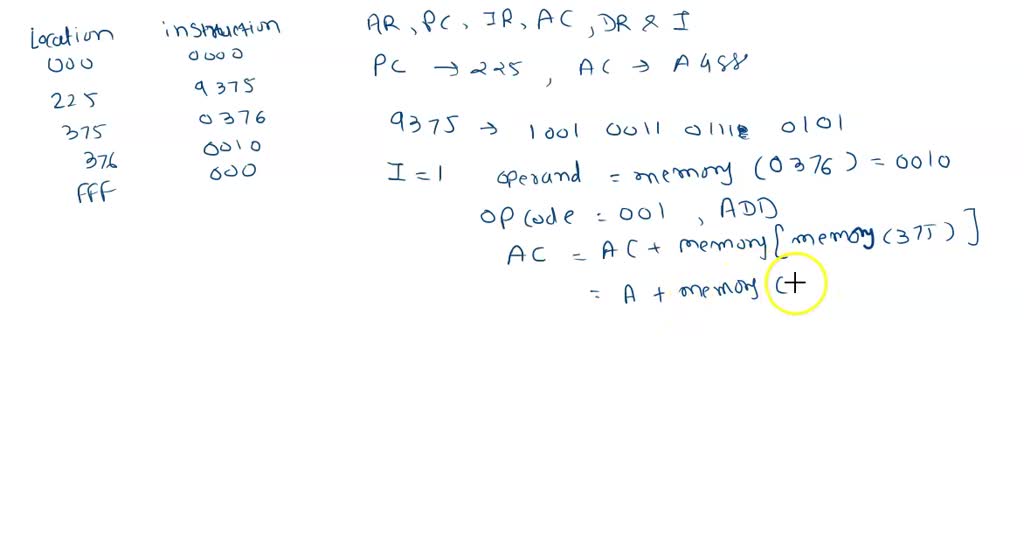 Location instruction
000 0000
225 9375
375 0376
376 0010
FFF 000
AR, PC, IR, AC, DR & I
PC → 225, AC → A488
9375 → 1001 0011 0111 0101
I = 1 operand = memory (0376) = 0010
OP code = 001, ADD
AC = AC + memory [memory (375)]
= A + memory (